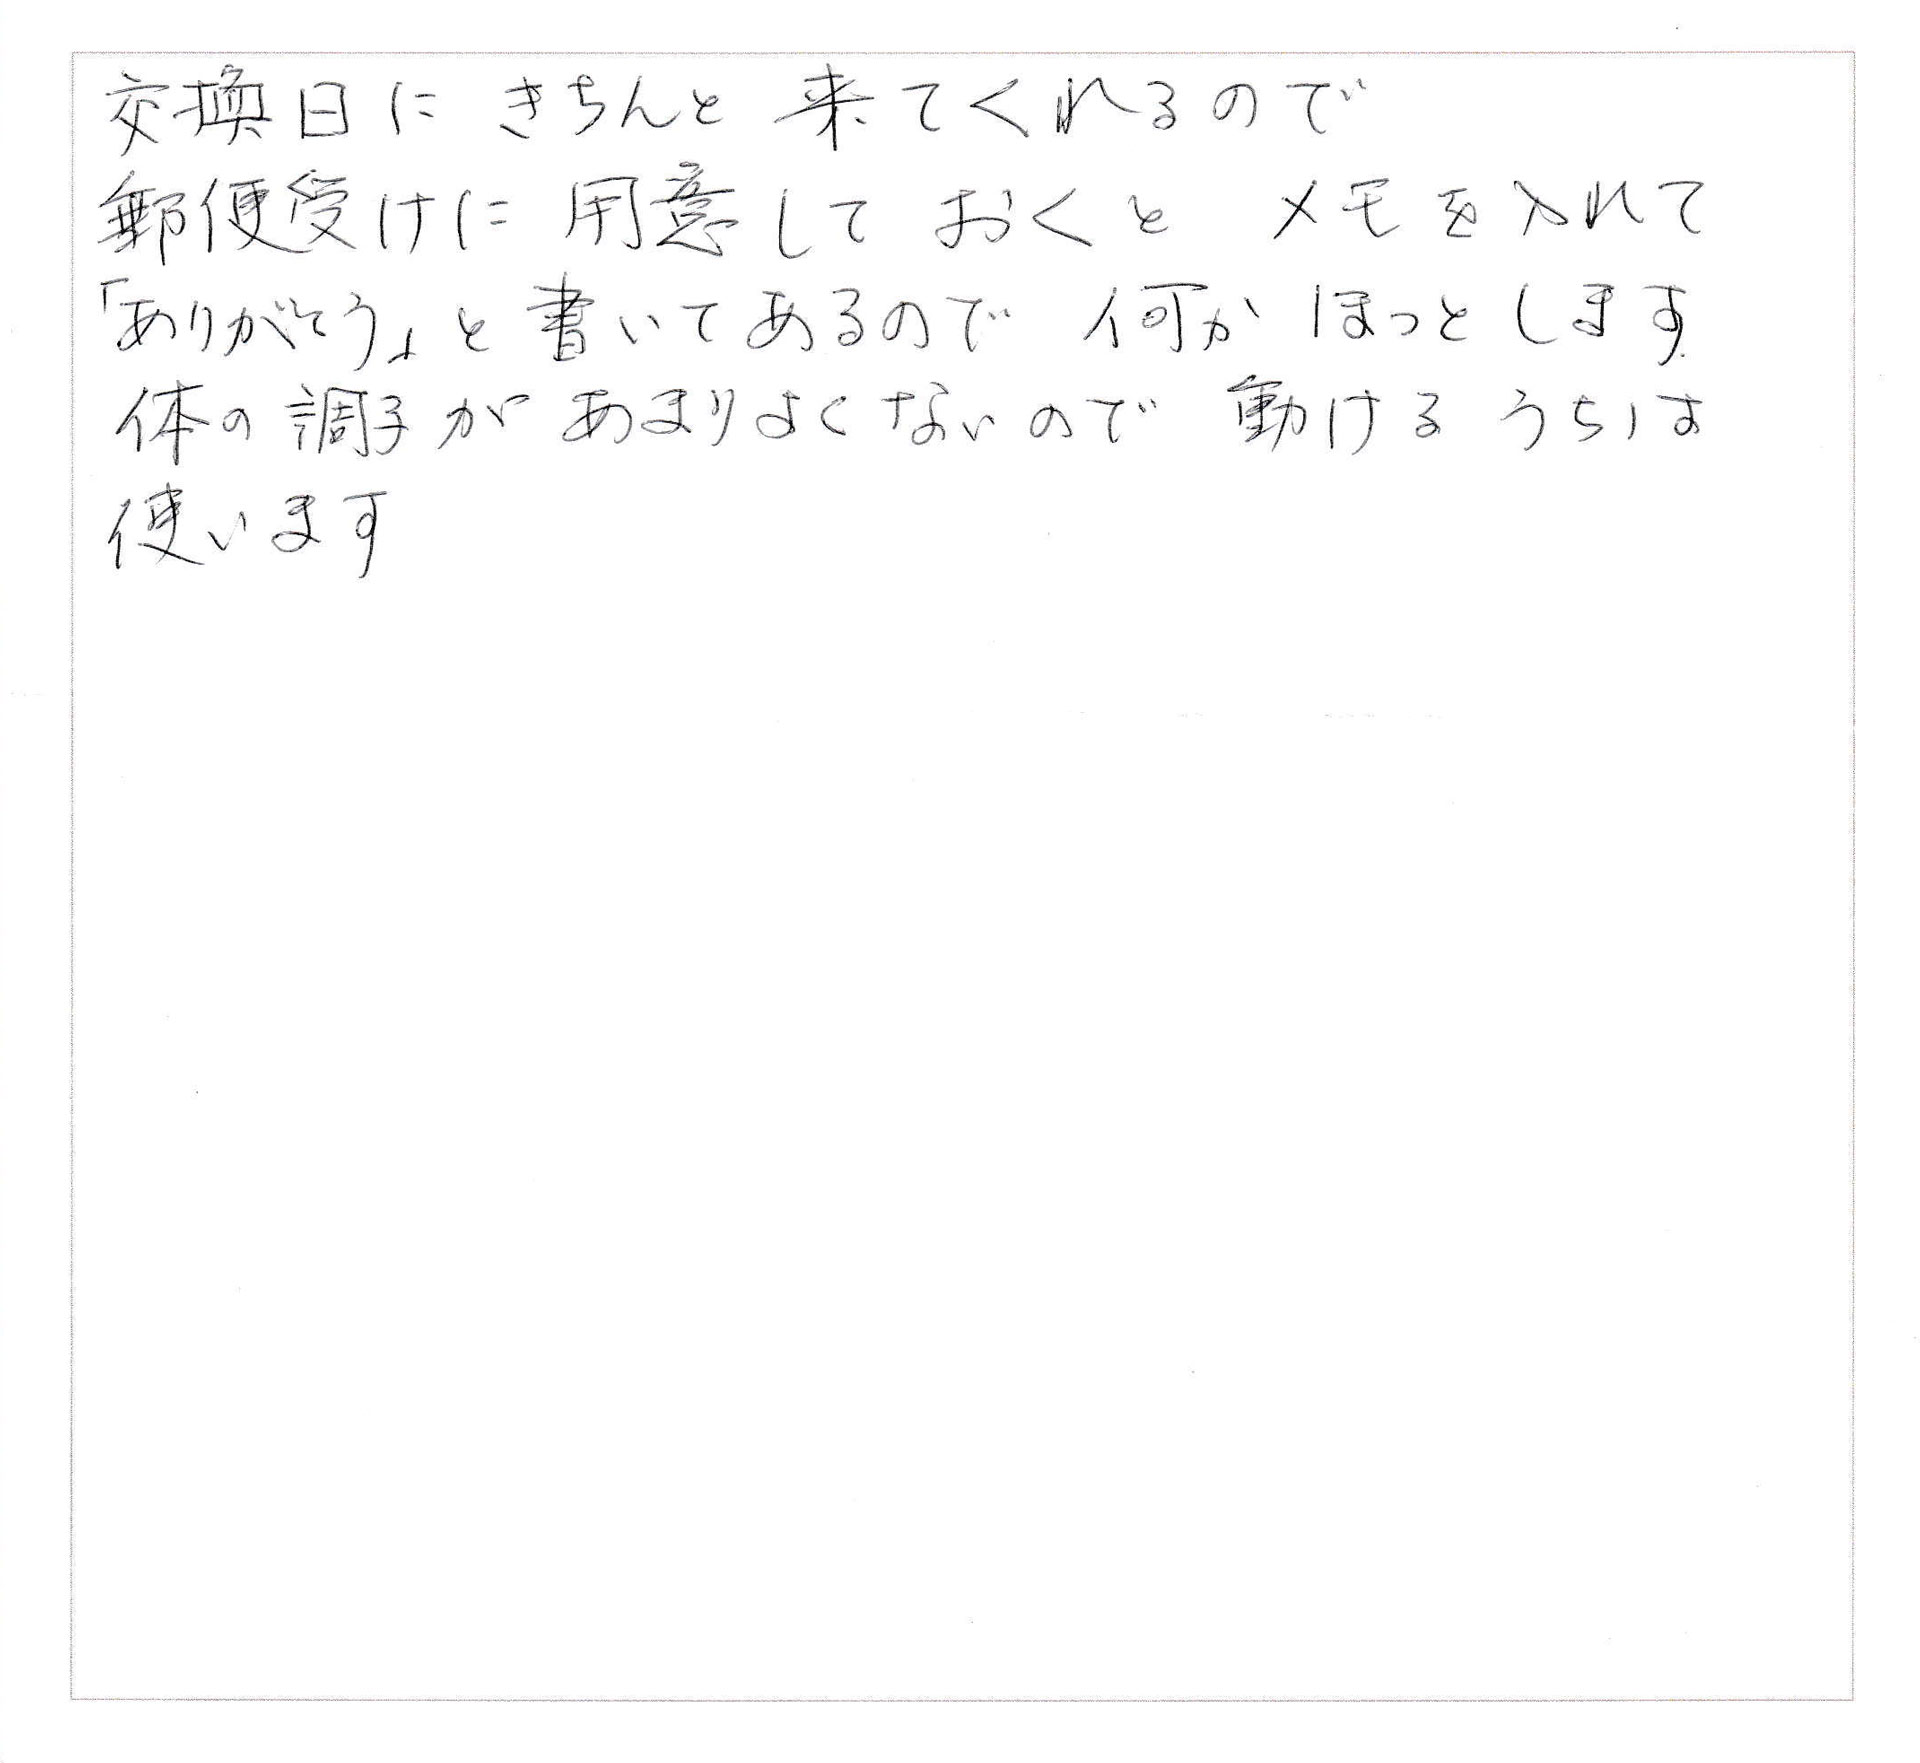 交換日に きちんと 来てくれるので
郵便受けに 用意して おくと メモを入れて
「ありがとう」と書いてあるので 何か ほっとします
体の調子が あまりよくないので 動ける うちは
使います